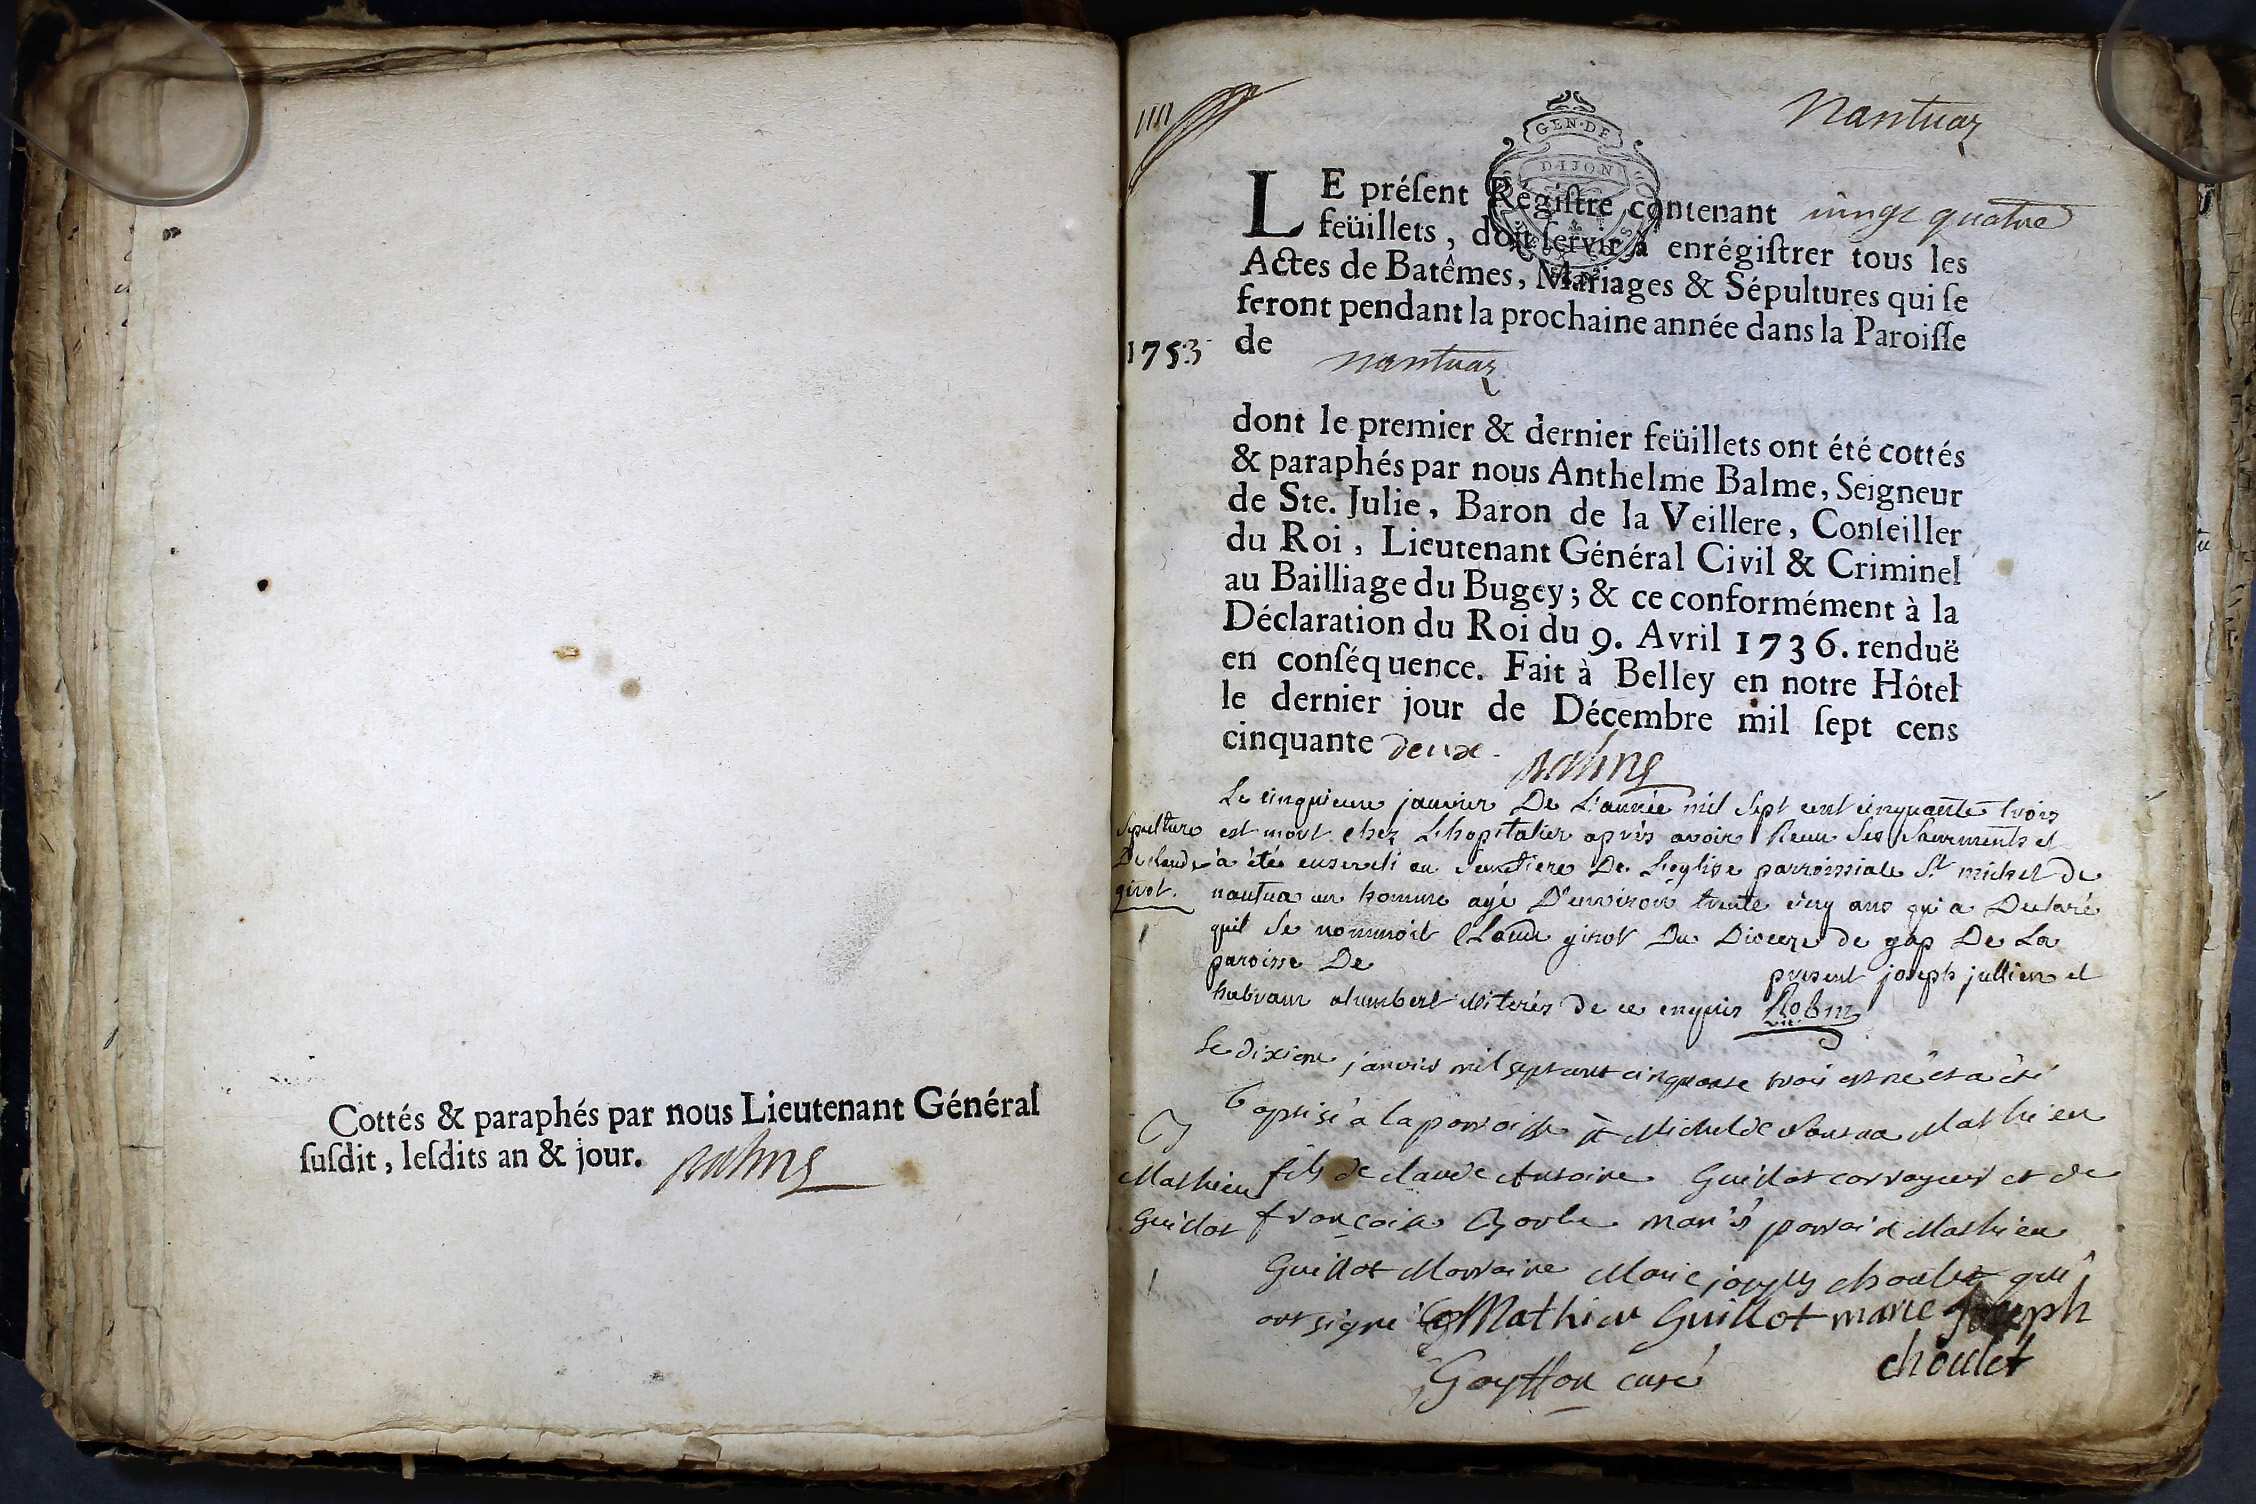 Cottés & paraphés par nous Lieutenant Général
ſuſdit, leſdits an & jour.
Nantuaz
GEN. DE
DIJON
LE préſent Régiſtre contenant vingt quatre
feüillets, doit ſervir à enrégiſtrer tous les
Actes de Batêmes, Mariages & Sépultures qui ſe
feront pendant la prochaine année dans la Paroiſſe
1753 de nantuaz
dont le premier & dernier feüillets ont été cottés
& paraphés par nous Anthelme Balme, Seigneur
de Ste. Julie, Baron de la Veillere, Conſeiller
du Roi, Lieutenant Général Civil & Criminel
au Bailliage du Bugey; & ce conformément à la
Déclaration du Roi du 9. Avril 1736. renduë
en conſéquence. Fait à Belley en notre Hôtel
le dernier jour de Décembre mil ſept cens
cinquante deux.
Sepulture
De Claude
girot.
Le cinquieme janvier De L'année mil Sept cent cinquante trois
est mort chez L'hopitalier aprés avoir Receu Ses Sacrements et
a été enseveli au Semetiere De L'eglise parroissiale St michel de
nantua un homme agé D'environ trente cinq ans qui a Declaré
quil Se nommoit Claude girot Du Dioceze de gap De La
paroisse De present joseph jullien et
alumbert illiterés de ce enquis Robin
Mathieu
Guillot
Le dixieme janvier mil sept cent cinquante trois est né et a été
baptisé a la parroisse St Michel de Nantua Mathieu
fils de claude Antoine Guillot corroyeur et de
françoise mariés parrain Mathieu
Guillot Marraine Marie joseph choulet qui
ont signé Mathieu Guillot marie Joseph
choulet
Goyffon curé